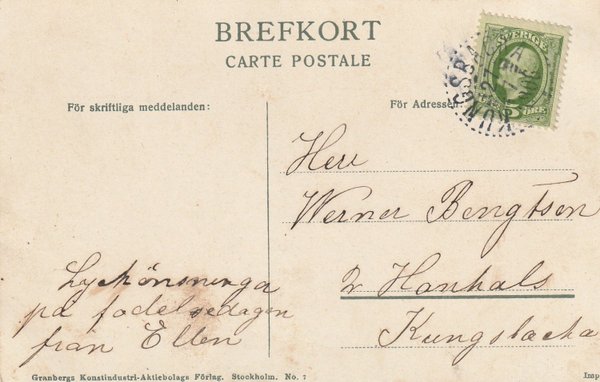 BREFKORT
CARTE POSTALE
För skriftliga meddelanden:
För Adressen
SVERIGE
5 ÖRE
KUNGSBA
Herr
Werner Bengtsen
Hanhals
Kungsbacka
Lyckönsninga
på födelsedagen
från Ellen
Granbergs Konstindustri-Aktiebolags Förlag. Stockholm. No. 7
Imp